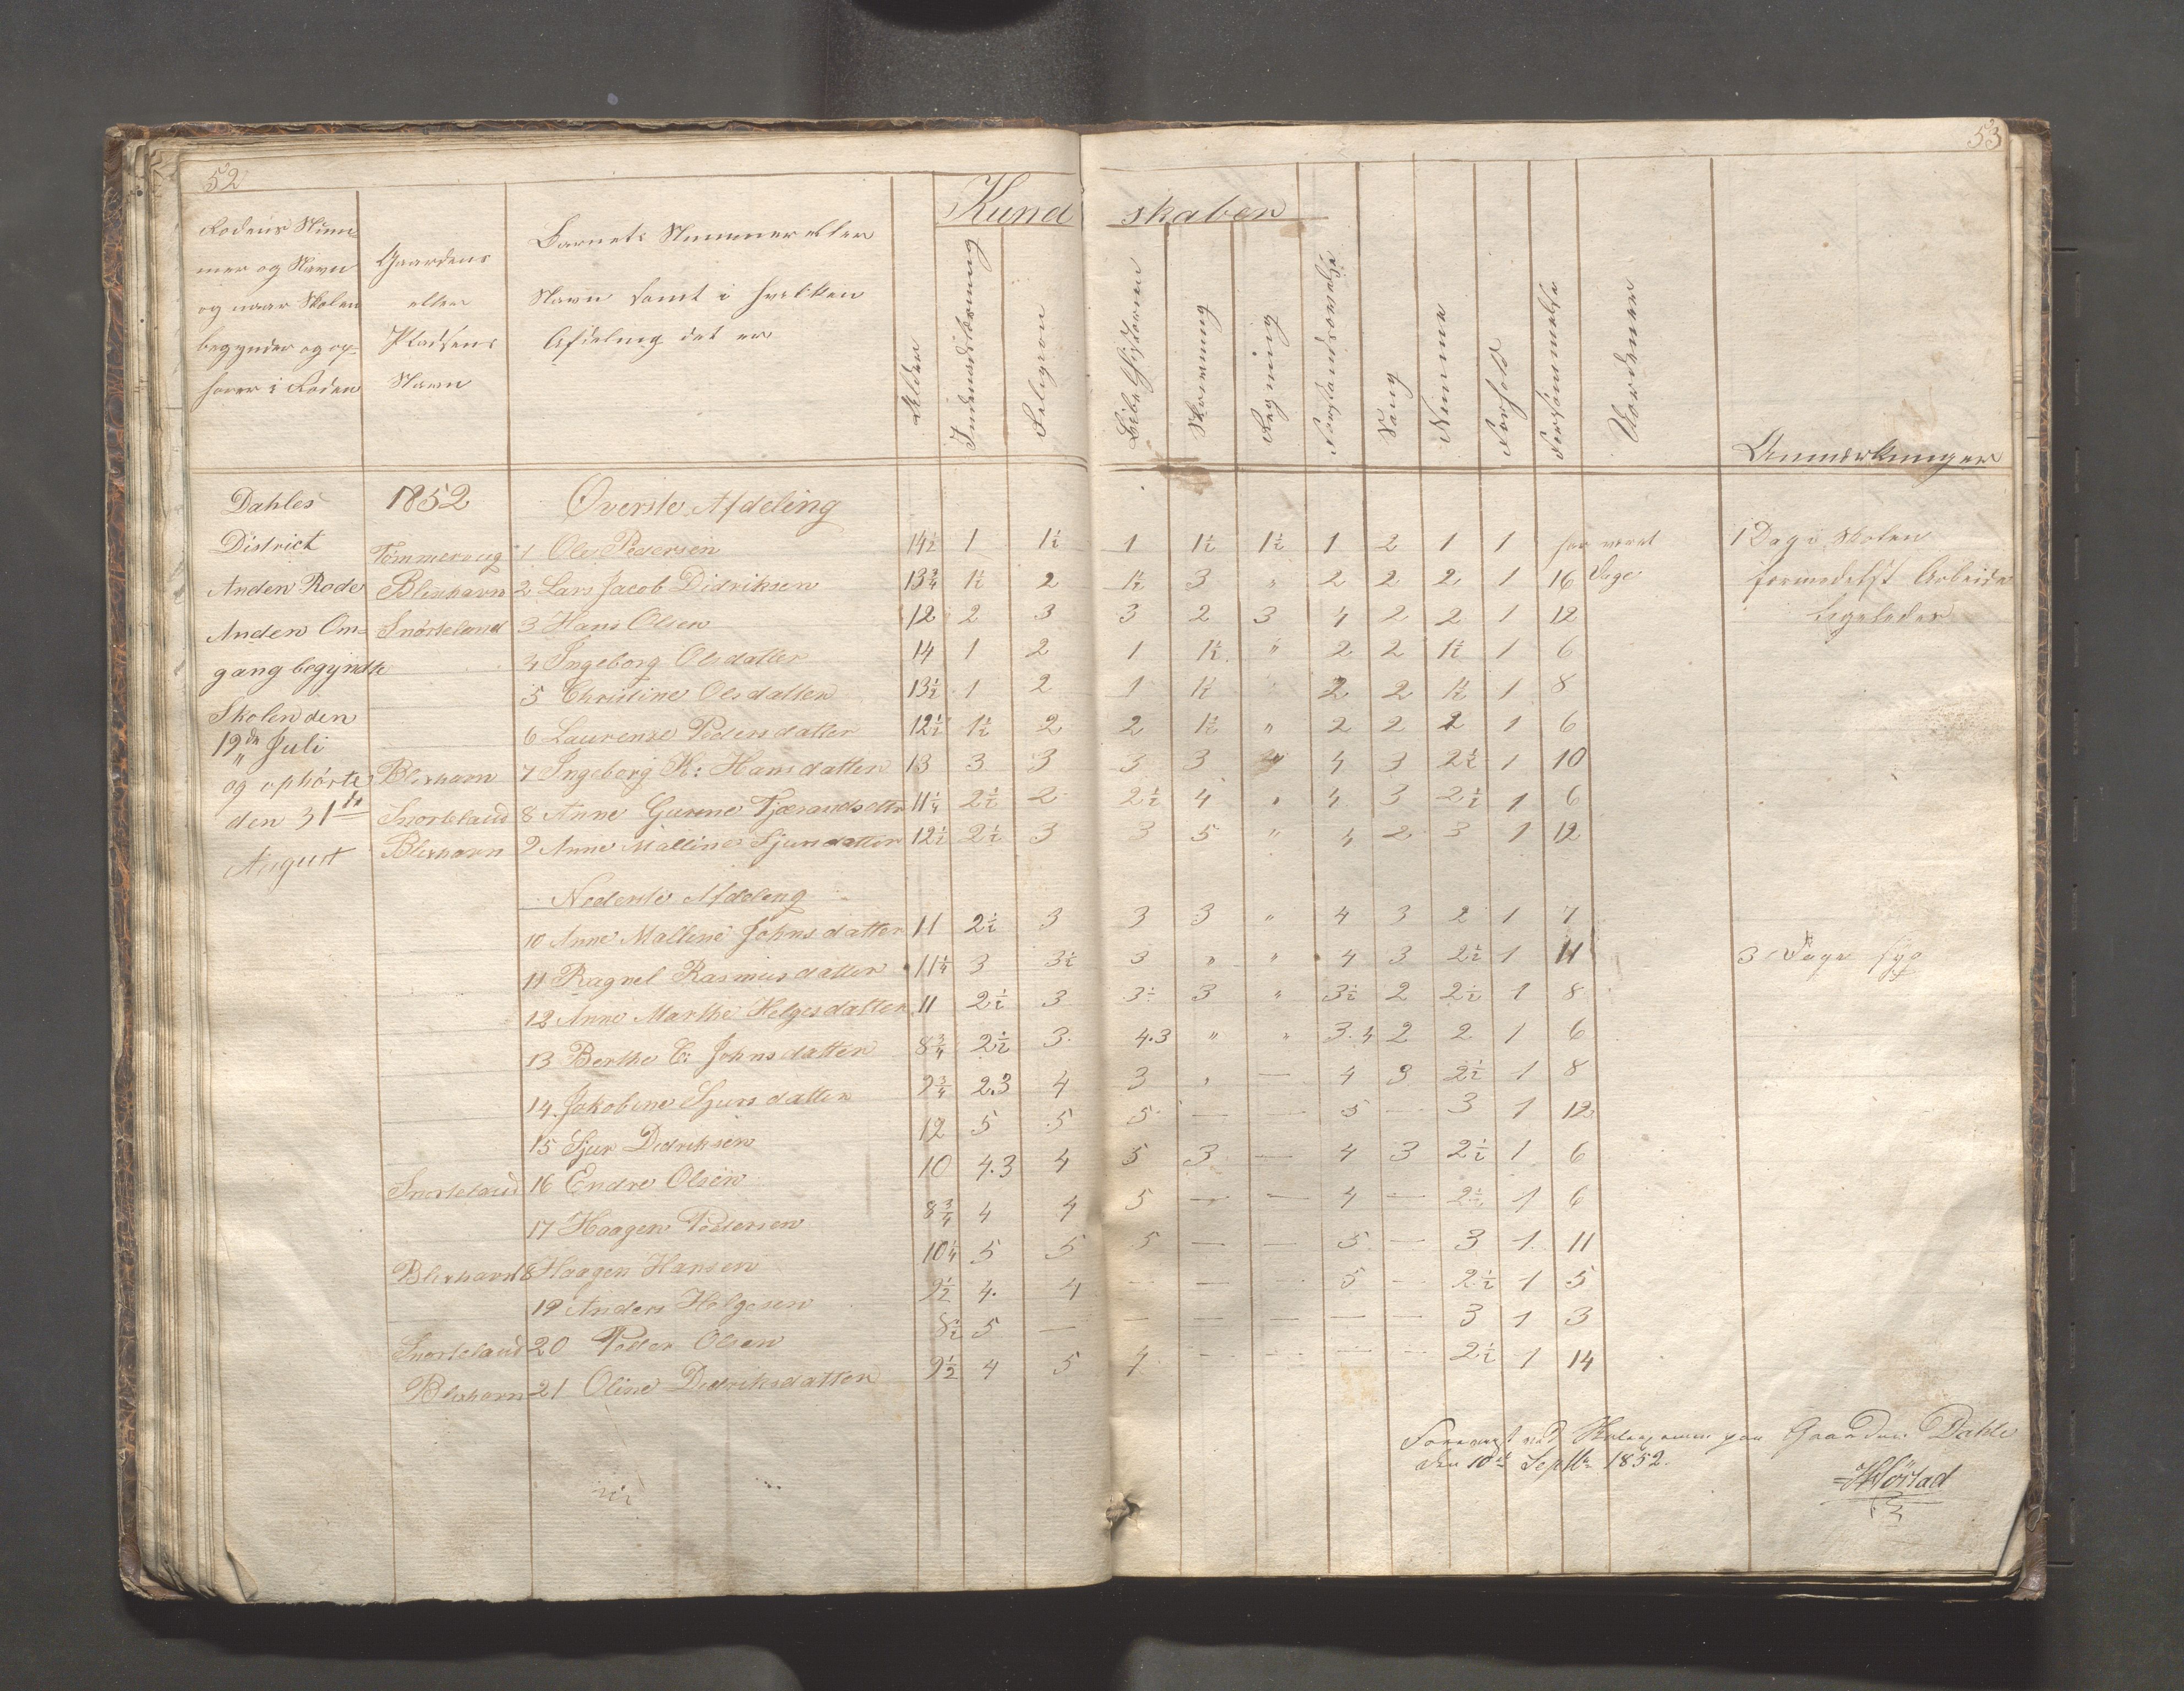 52
53
Kund skaber
Rodens Num-
mer og Navn
og naar Skolen
begynder og op-
hører i Roden
Gaardens
eller
Pladsens
Navn
Barnets Nummer eller
Navn samt i hvilken
Afdeling det er
Alder
Indenadslæsning
Religion
Bibel Historie
Skrivning
Regning
Forstandsøvelse
Sang
Nemme
Forhold
Forsømmelse
Vurderer
Anmærkninger
Dahles 1852 Øverste Afdeling
District Tømmervig 1 Ole Pedersen 14½ 1 1½ 1 1½ 1½ 1 2 1 1 har været 1 Dag i Skolen
Anden Rode Blixhavn 2 Lars Jacob Didriksen 13¾ 1½ 2 1½ 3 " 2 2 2 1 16 Dage formedelst Arbeide
Anden Om- Snørteland 3 Hans Olsen 12 2 3 3 2 3 4 2 2 1 12 ligeledes
gang begyndte 4 Ingeborg Olsdatter 14 1 2 1 1½ " 2 2 1½ 1 6
5 Christine Olsdatter 13½ 1 2 1 1½ 2 2 1½ 1 8
Skolen den
6 Laurense Pedersdatter 12½ 1½ 2 2 1½ " 2 2 2 1 6
19de Juli
og ophørte Blixhavn 7 Ingeborg K: Hansdatter 13 3 3 3 3 4 3 2½ 1 10
den 31te Snørteland 8 Anne Gurine Tjærandsdtr 11¼ 2½ 2 2½ 4 " 4 3 2½ 1 6
August Blixhavn 9 Anne Malline Sjursdatter 12½ 2½ 3 3 5 " 4 2 3 1 12
Nederste Afdeling
10 Anne Malline Johnsdatter 11 2½ 3 3 3 " 4 3 2 1 7
11 Ragnel Rasmusdatter 11¼ 3 3½ 3 " " 4 3 2½ 1 11 3 Dage syg
12 Anne Marthe Helgesdatter 11 2½ 3 3½ 3 " 3½ 2 2½ 1 8
13 Berthe C: Johnsdatter 8¾ 2½ 3. 4.3 " " 3.4 2 2 1 6
14 Jakobine Sjursdatter 9¾ 2.3 4 3 " — 4 3 2½ 1 8
15 Sjur Didriksen 12 5 5 5 — — 5 — 3 1 12
Snørteland 16 Endre Olsen 10 4.3 4 5 3 — 4 3 2½ 1 6
17 Haagen Pedersen 8¾ 4 4 5 — — 4 — 2½ 1 6
Blixhavn 18 Haagen Hansen 10¼ 5 5 5 — — 5 — 3 1 11
19 Anders Helgesen 9½ 4. 4 — — 5 — 2½ 1 5
Snørteland 20 Peder Olsen 8½ 5 — — — — — — 3 1 3
Blixhavn 21 Oline Didriksdatter 9½ 4 5 4 — — — — 2½ 1 14
Gaarden Dahle
den 10de Septbr 1852.